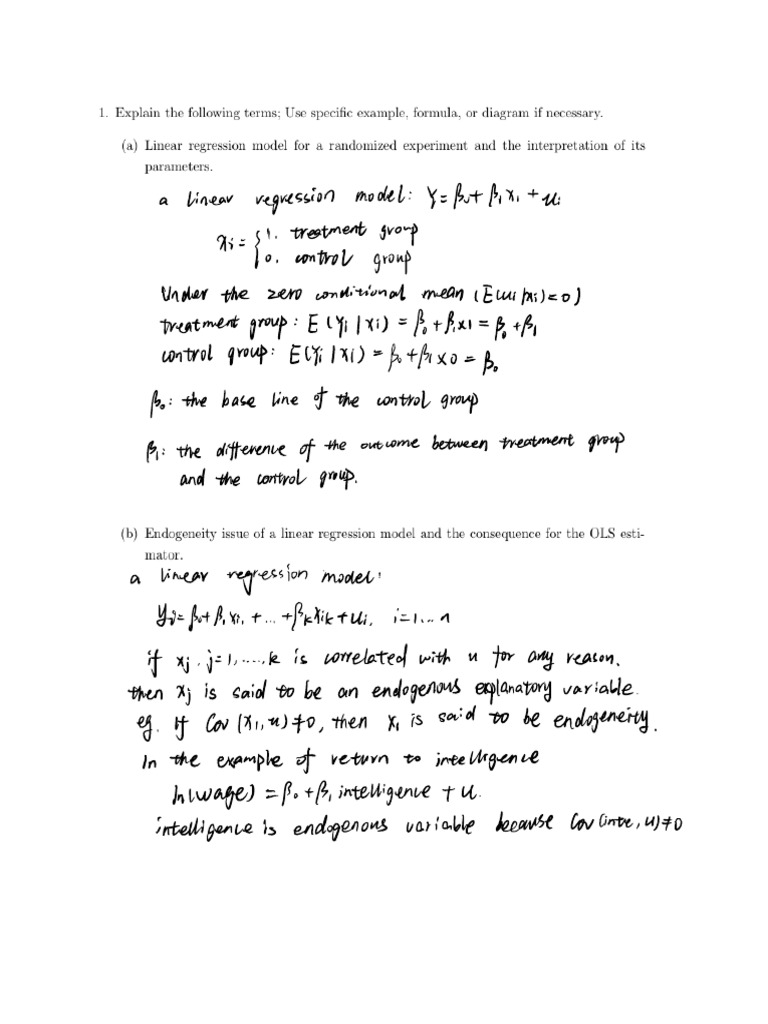 1. Explain the following terms; Use specific example, formula, or diagram if necessary.
(a) Linear regression model for a randomized experiment and the interpretation of its
parameters.
a linear regression model: Y = β₀ + β₁x₁ + uᵢ
xᵢ = { 1. treatment group
0. control group
Under the zero conditional mean (E(ui|xi)=0)
treatment group: E(Yi|Xi) = β₀ + β₁x1 = β₀ + β₁
control group: E(Yi|Xi) = β₀ + β₁x0 = β₀
β₀: the base line of the control group
β₁: the difference of the outcome between treatment group
and the control group.
(b) Endogeneity issue of a linear regression model and the consequence for the OLS esti-
mator.
a linear regression model:
yᵢ = β₀ + β₁xᵢ₁ + ... + βₖxᵢₖ + uᵢ, i=1,...n
if xj, j=1,....,k is correlated with u for any reason,
then xj is said to be an endogenous explanatory variable.
eg. If Cov(x₁,u)≠0, then x₁ is said to be endogeneity.
In the example of return to intelligence
ln(wage) = β₀ + β₁ intelligence + u.
intelligence is endogenous variable because Cov(inte, u)≠0